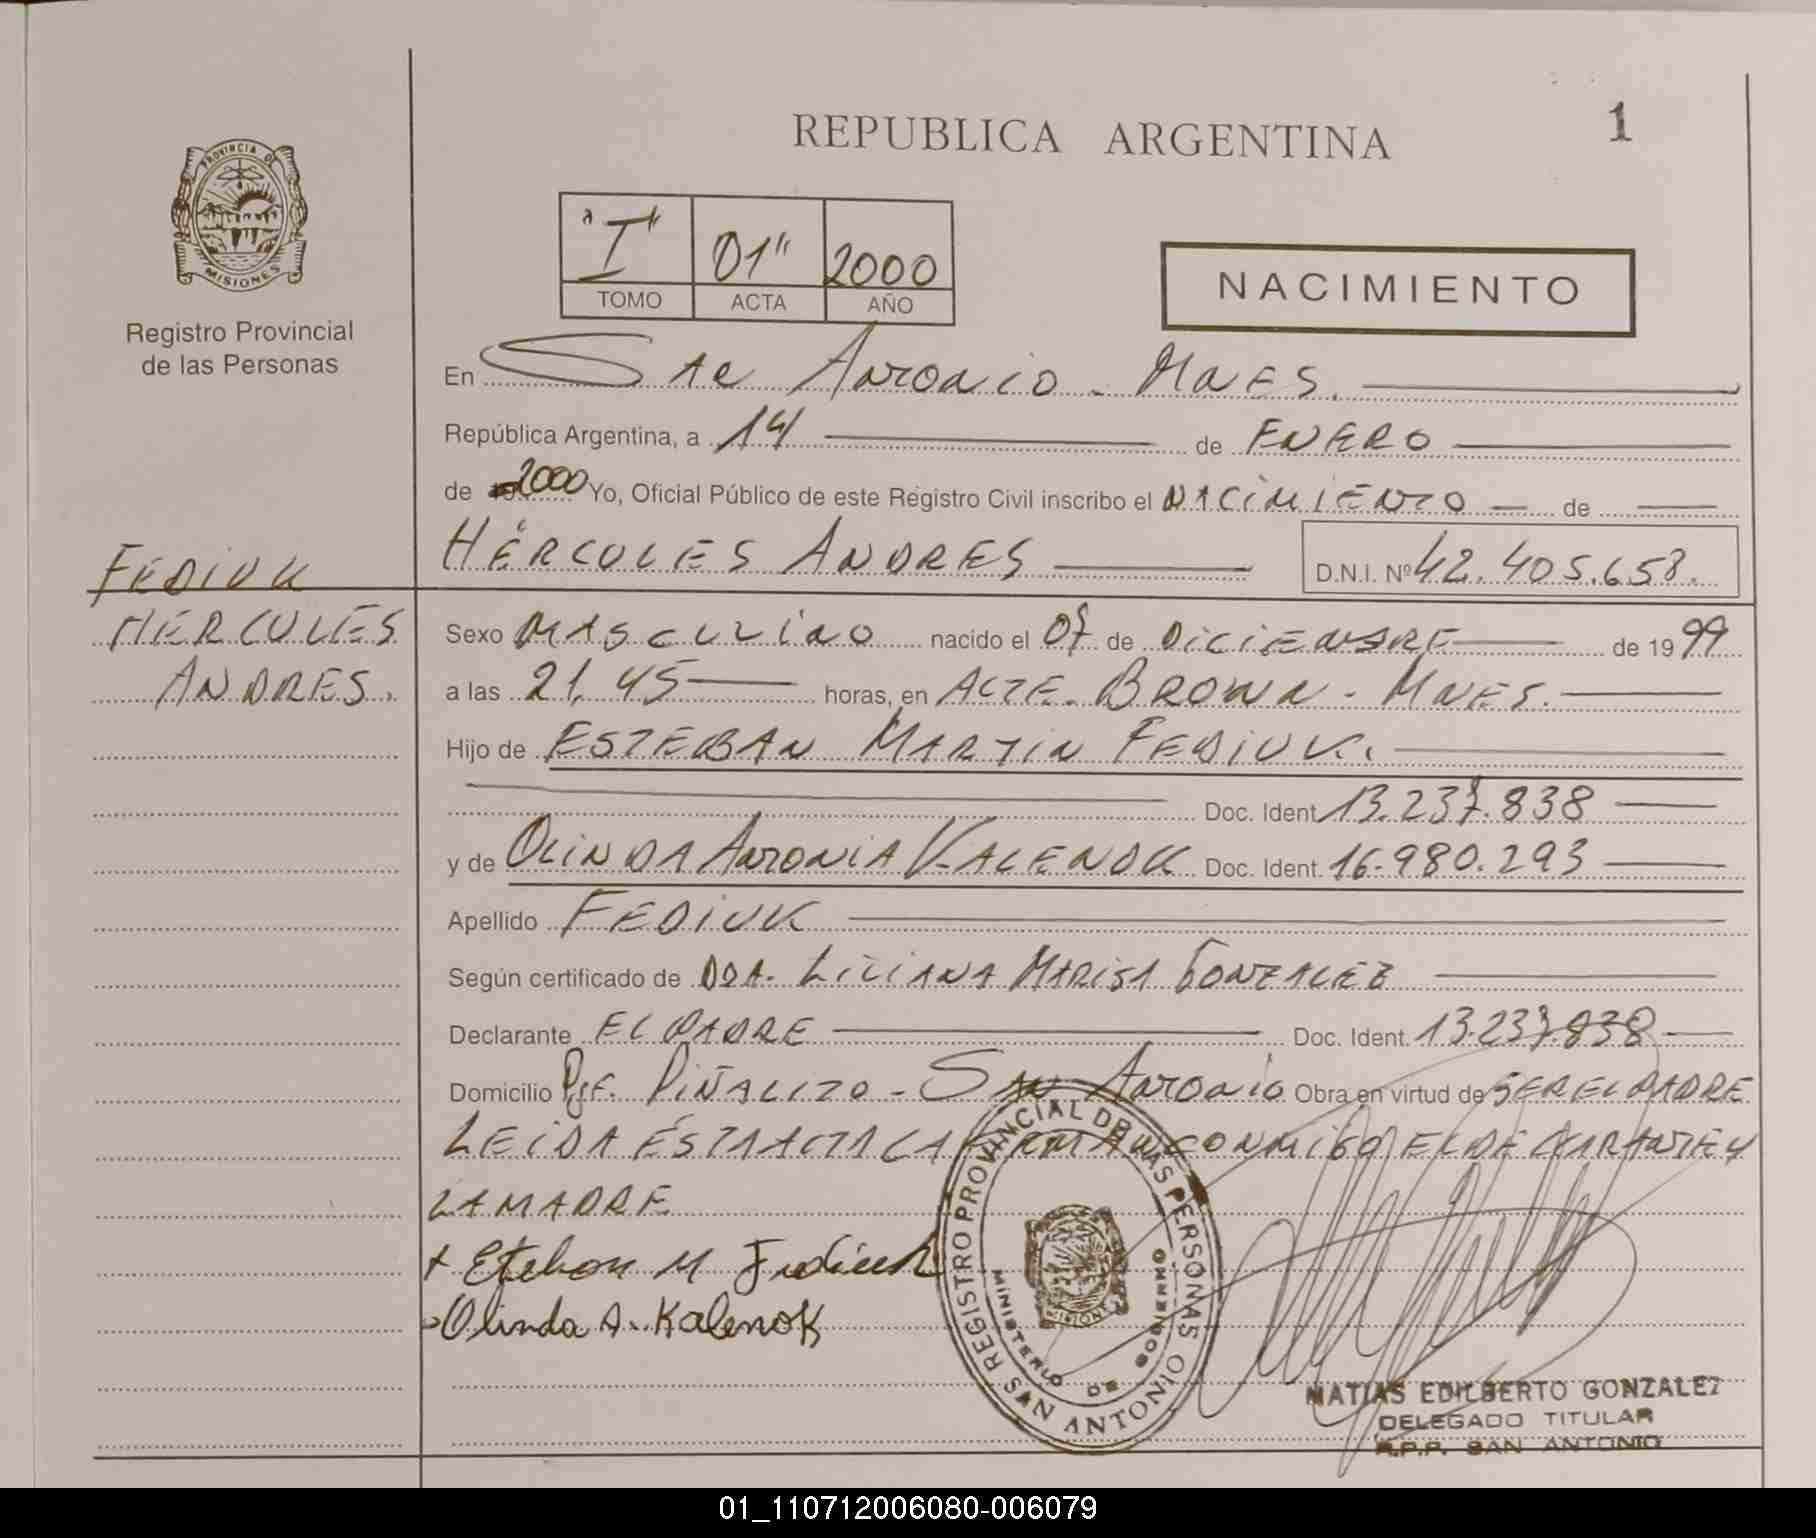 REPUBLICA ARGENTINA
1
PROVINCIA DE
MISIONES
Registro Provincial
de las Personas
"I" 01" 2000
TOMO ACTA AÑO
NACIMIENTO
En San Antonio - Mnes.
República Argentina, a 14 de ENERO
de 2000 Yo, Oficial Público de este Registro Civil inscribo el NACIMIENTO de
HÉRCULES ANDRES D.N.I. Nº 42.405.658.
FEDIUK
HERCULES
ANDRES.
Sexo MASCULINO nacido el 07 de DICIEMBRE de 1999
a las 21,45 horas, en ALTE. BROWN - MNES.
Hijo de ESTEBAN MARTIN FEDIUK.
Doc. Ident 13.237.838
y de OLINDA ANTONIA KALENOK Doc. Ident. 16.980.293
Apellido FEDIUK
Según certificado de DRA. LILIANA MARISA GONZALEZ
Declarante EL PADRE Doc. Ident. 13.237.838
Domicilio Pje. PIÑALITO - SAN ANTONIO Obra en virtud de SER EL PADRE
LEIDA ESTA ACTA LA FIRMAN CONMIGO EL DECLARANTE Y
LA MADRE
+ Esteban M Fediuk
Olinda A. Kalenok
REGISTRO PROVINCIAL DE LAS PERSONAS
MINISTERIO DE GOBIERNO
MISIONES
SAN ANTONIO
MATIAS EDILBERTO GONZALEZ
DELEGADO TITULAR
R.P.P. SAN ANTONIO
01_110712006080-006079